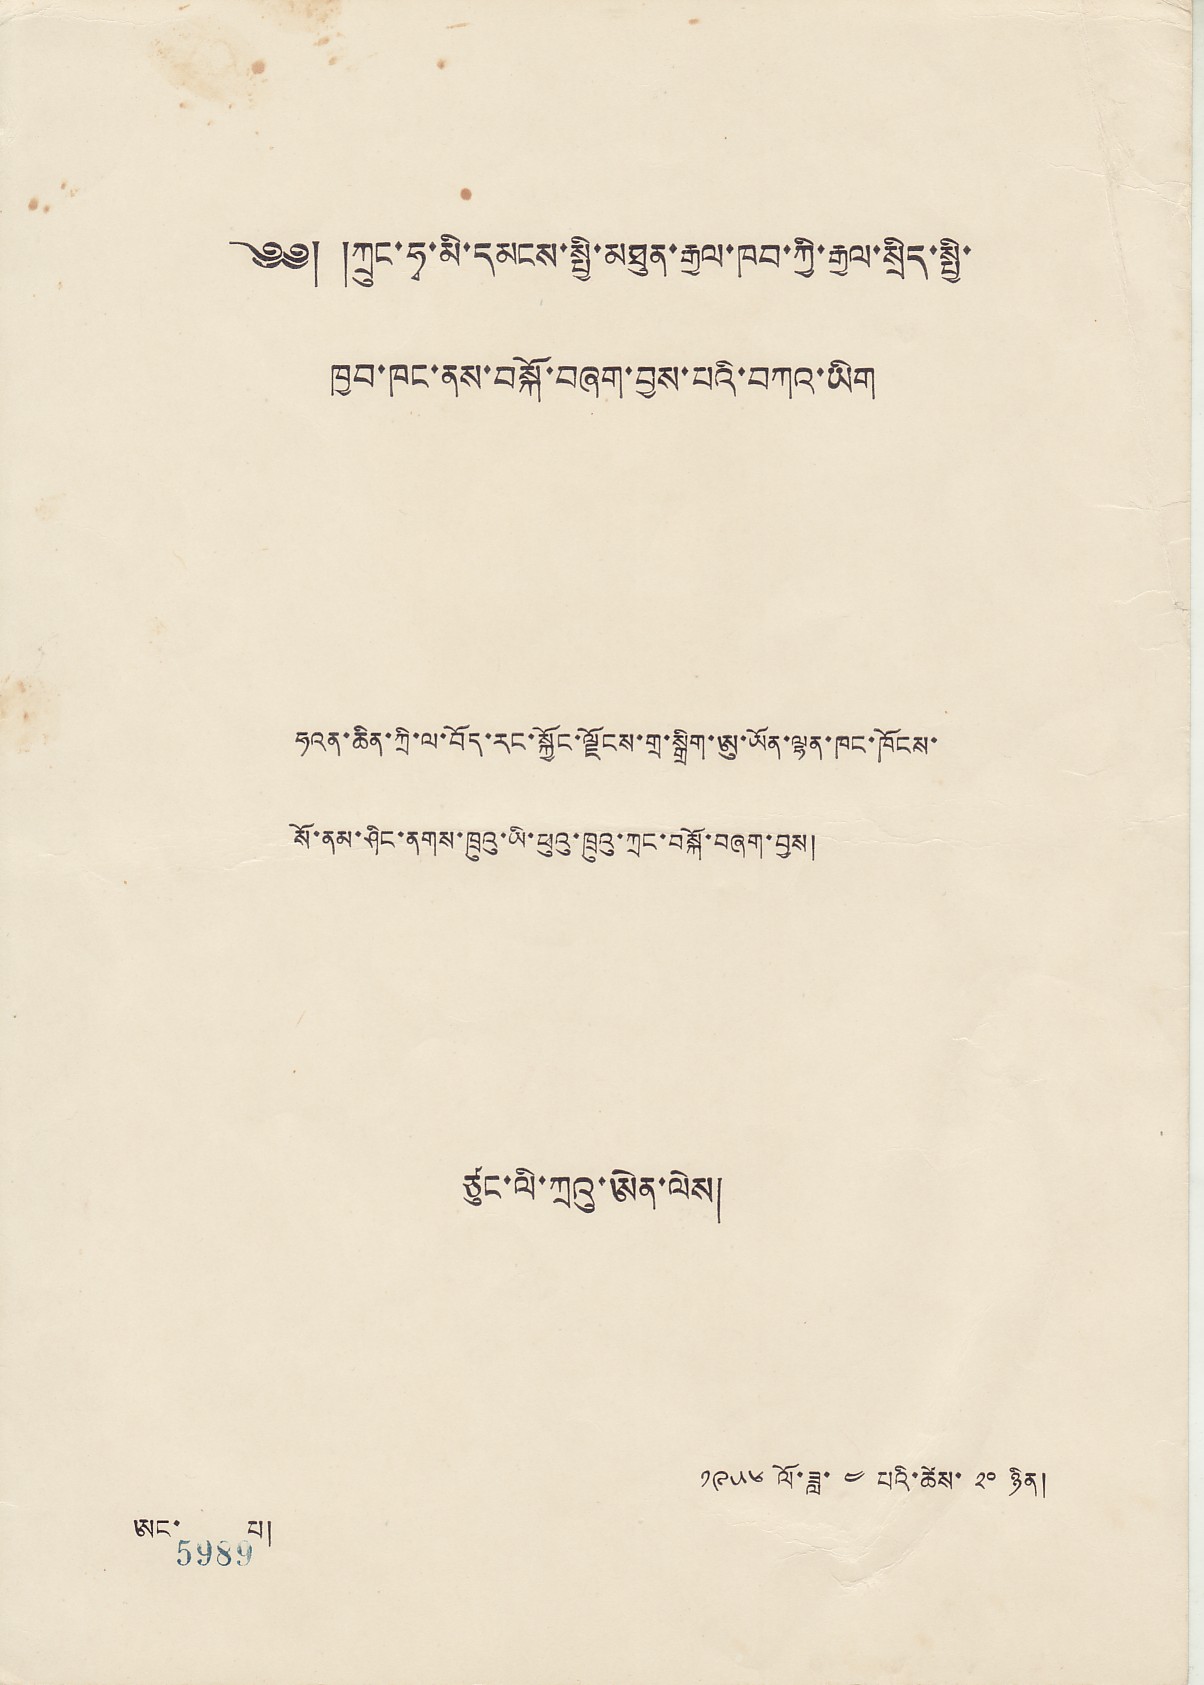 ༄༅། །ཀྲུང་ཧྭ་མི་དམངས་སྤྱི་མཐུན་རྒྱལ་ཁབ་ཀྱི་རྒྱལ་སྲིད་སྤྱི་
ཁྱབ་ཁང་ནས་བསྐོ་བཞག་བྱས་པའི་བཀའ་ཡིག
ཧའན་ཆིན་ཀྲི་ལ་བོད་རང་སྐྱོང་ལྗོངས་གྲ་སྒྲིག་ཨུ་ཡོན་ལྷན་ཁང་ཁོངས་
སོ་ནམ་ཤིང་ནགས་ཁྲུའུ་ཡི་ཕུའུ་ཁྲུའུ་ཀྲང་བསྐོ་བཞག་བྱས།
ཙུང་ལི་ཀྲའུ་ཨེན་ལེས།
༡༩༥༦ ལོ་ཟླ་ ༩ པའི་ཚེས་ ༢༠ ཉིན།
ཨང་ 5989 པ།